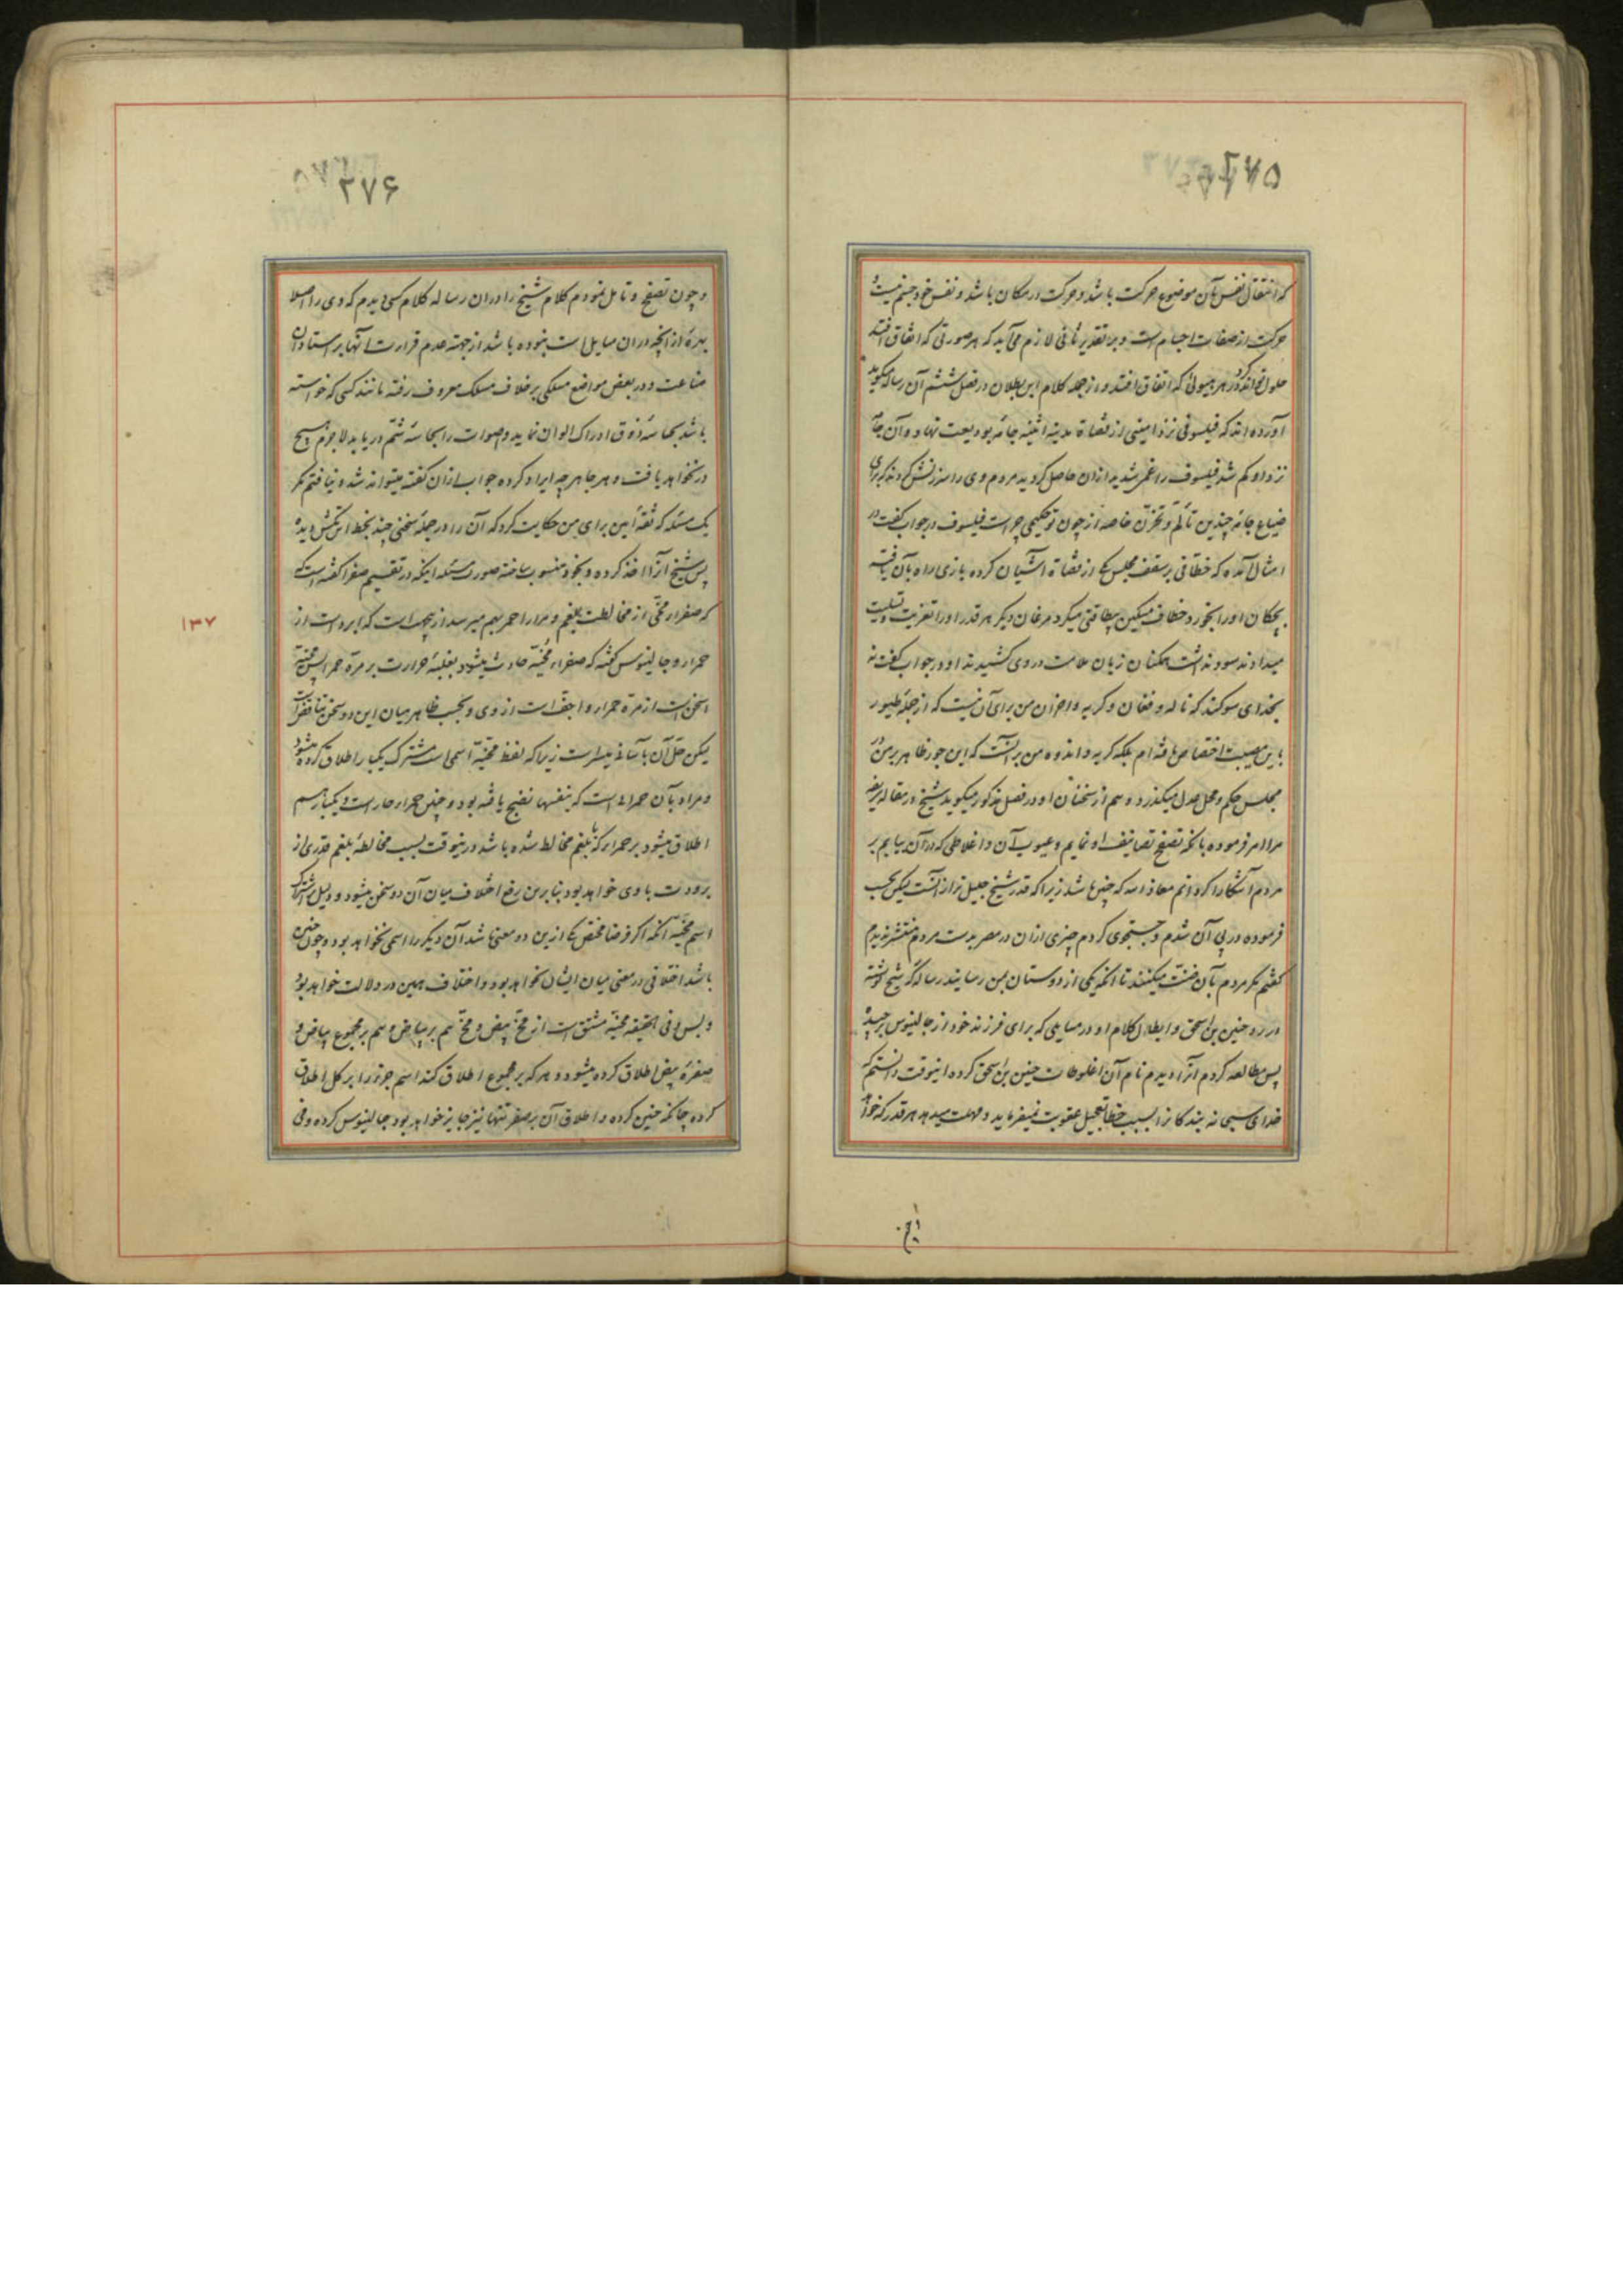 ۲۷۵
که انتقال نفس بآن موضوع حرکت باشد و حرکت در مکان باشد و نفس خود جسم نیست و
حرکت از صفات اجسام است و بر تقدیر ثانی لازم می‌آید که هر صورتی که اتفاق افتد
حلول تواند کرد در هر هیولی که اتفاق افتد و از جمله کلام ابن بطلان در فصل ششم آن رساله میگوید
آورده‌اند که فیلسوفی نزد امینی از قضاة مدینه اثینیه جامه بودیعت نهاد و آن جامه
نزد او کم شد فیلسوف را غمی شدید ازان حاصل کردید مردم وی را سرزنش کردند که برای
ضیاع جامه چندین تألم و تحزن خاصه از چون تو حکیمی چراست فیلسوف در جواب گفت در
امثال آمده که خطافی بر سقف مجلس یکی از قضاة آشیان کرده بازی راه بآن یافته
بچکان او را بخورد خطاف میکین بیطاقتی میکرد مرغان دیگر هر قدر او را تعزیت و تسلیت
میدادند سود نداشت همکنان زبان ملامت در وی کشیدند او در جواب گفت نه
بخدای سوکند که ناله و فغان و کریه و احزان من برای آن نیست که از جمله طیور
باین مصیبت اختصاص یافته‌ام بلکه کریه و اندوه من بر آنست که این جور ظاهر بر من در
مجلس حکم و محل عدل میکذرد و هم از سخنان او در فصل مذکور میکوید شیخ در مقاله
مرا امر فرموده بانکه تصفح تصانیف او نمایم و عیوب آن و اغلاطی که در آن بیابم بر
مردم آشکارا کردانم معاذ الله که چنین باشد زیرا که قدر شیخ جلیل‌تر از آنست لیکن بحسب
فرموده در پی آن شدم و جستجوی کردم چیزی ازان در مصر بدست مردم منتشر ندیدم
گفتم مکر مردم بآن ضنت میکنند تا آنکه یکی از دوستان بمن رسانید رساله که شیخ نوشته
در رد حنین بن اسحق و ابطال کلام او در مسایلی که برای فرزند خود از جالینوس برچیده
پس مطالعه کردم آنرا و دیدم نام آن اغلوطات حنین بن اسحق کرده اینوقت دانستم که
خدای سبحانه بندکانرا بسبب خطا تعجیل عقوبت نمیفرماید و مهلت میدهد هر قدر که خواهد
۲۷۶
و چون تصفح و تامل نمودم کلام شیخ را در ان رساله کلام کسی دیدم که وی را اصلا
بهرهٔ از انچه دران مسایل است نبوده باشد از جهته عدم قراءت آنها بر استادان
صناعت و در بعض مواضع مسلکی بر خلاف مسلک معروف رفته مانند کسی که خواسته
باشد بحاسهٔ ذوق ادراک الوان نماید و اصوات را بحاسهٔ شم دریابد لاجرم هیچ
در نخواهد یافت و هر جا هر چه ایراد کرده جواب ازان گفته میتواند شد و نیافتم مکر
یک مسئله که ثقهٔ امین برای من حکایت کرد که آن را در جمله سخنی چند بخط ابرنحش دیده
پس شیخ آنرا اخذ کرده و بخود منسوب ساخته صورت مسئله اینکه در تقسیم صفرا گفته است که
که صفراء محی از مخالطت بلغم و مرار احمر بهم میرسد ازینجهت است که ابرد است از
حمراء و جالینوس گفته که صفراء محیه حادث میشود بغلبهٔ حرارت بر مرة حمرا پس محیه
اسخن است از مرة حمراء و اجف است از وی و بحسب ظاهر میان این دو سخن تناقض است
لیکن حل آن باسانی میسر است زیرا که لفظ محیه اسمی است مشترک یکبار اطلاق کرده میشود
و مراد بآن حمرائی است که بنفسها نضج یافته بود و چنین حمراء حار است و یکبار هم
اطلاق میشود بر حمراء که با بلغم مخالط شده باشد درینوقت بسبب مخالطهٔ بلغم قدری از
برودت باوی خواهد بود بنابرین رفع اختلاف میان آن دو سخن میشود و دلیل اشتراک
اسم محیه آنکه اکر فرضا مختص یکی ازین دو معنی باشد آن دیگر را اسمی نخواهد بود و چون چنین
باشد اختلافی در معنی میان ایشان نخواهد بود و اختلاف همین در دلالت خواهد بود
و بس و فی الحقیقه محیه مشتق است از مح بیض و مح هم بر بیاض و هم بر مجموع بیاض و
صفرهٔ بیض اطلاق کرده میشود و هر که بر مجموع اطلاق کند اسم جزو را بر کل اطلاق
کرده چنانکه حنین کرده و اطلاق آن بر صفرت تنها نیز جایز خواهد بود جالینوس کرده و فی
۱۳۷